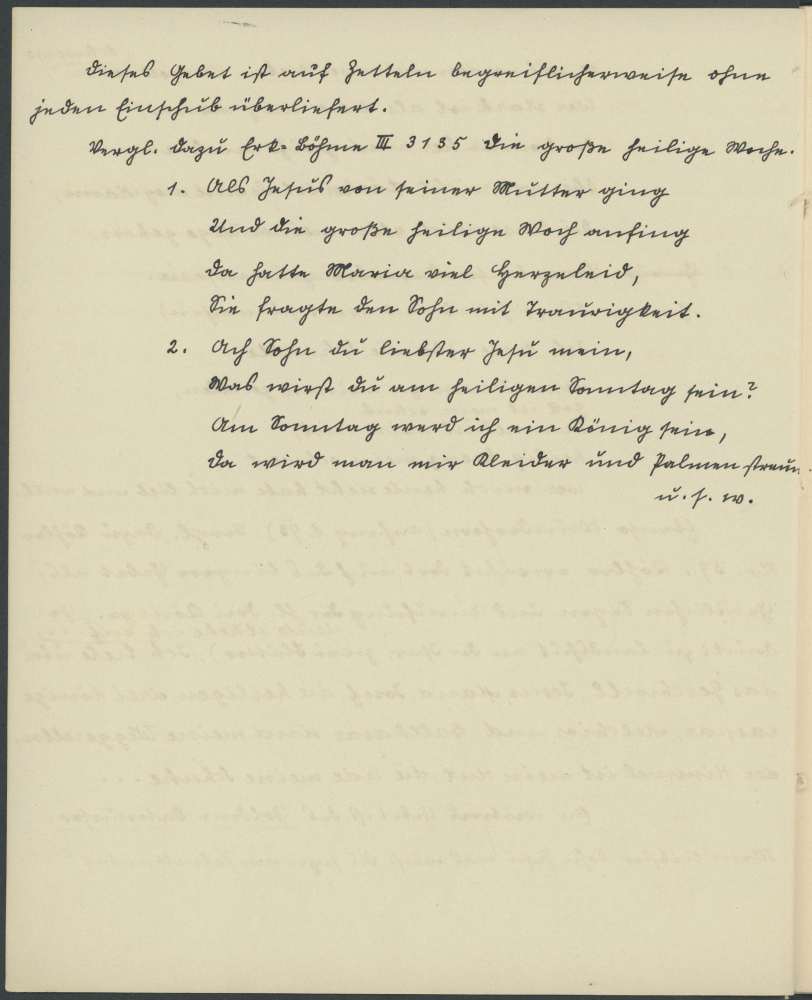 Dieses Gebet ist auf Zetteln begreiflicherweise ohne
jeden Einschub überliefert.
Vergl. dazu Erk-Böhme III 3135 Die große heilige Woche.
1. Als Jesus von seiner Mutter ging
Und die große heilige Woch anfing
Da hatte Maria viel Herzeleid,
Sie fragte den Sohn mit Traurigkeit.
2. Ach Sohn du liebster Jesu mein,
Was wirst du am heiligen Sonntag sein?
Am Sonntag werd ich ein König sein,
Da wird man mir Kleider und Palmen streun.
u. s. w.